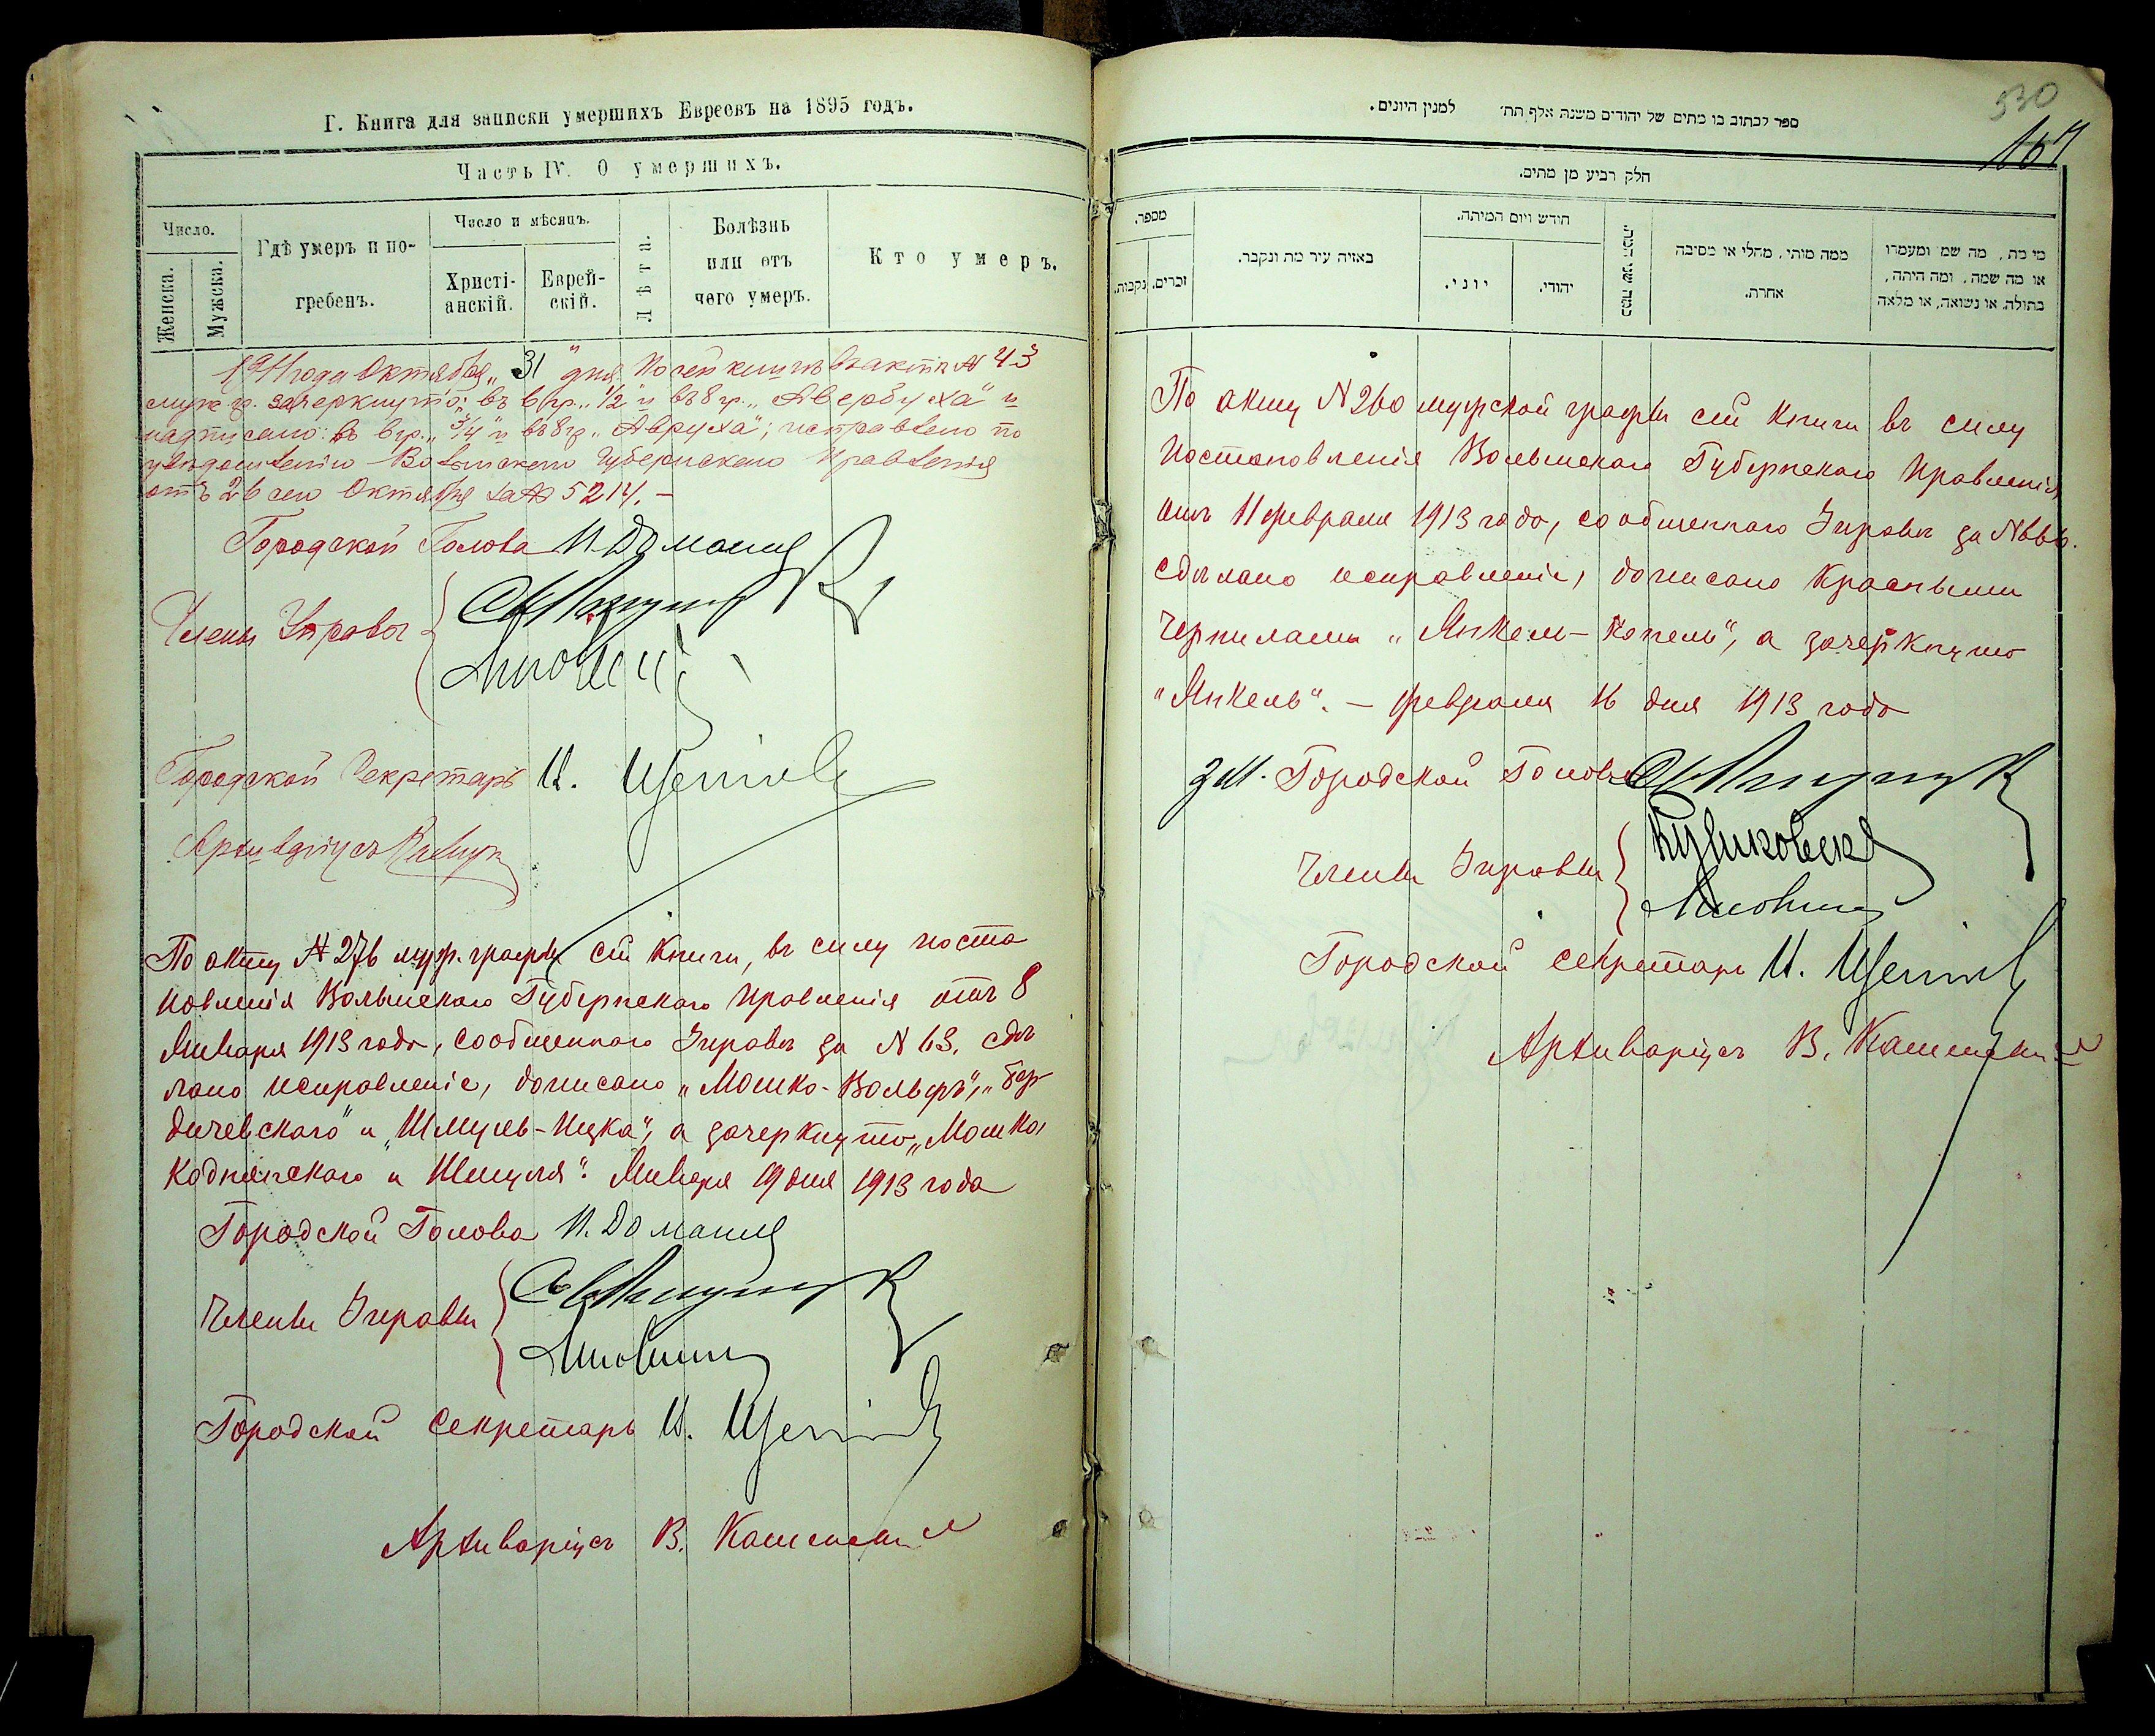 Г. Книга для записки умершихъ Евреевъ на 1895 годъ.
Часть IV. О умершихъ.
Число.
Женска.
Мужска.
Гдѣ умеръ и по-
гребенъ.
Число и мѣсяцъ.
Христі-
анскій.
Еврей-
скій.
Лѣта.
Болѣзнь
или отъ
чего умеръ.
Кто умеръ.
1911 года Октября „31" дня. По сей книгѣ въ актѣ № 43
муж. гр. зачеркнуто: въ 6 гр. „1/2" и въ 8 гр. „Авербуха" и
надписано: въ 6 гр. „3/4" и въ 8 гр. „Авруха"; исправлено по
увѣдомленію Волынскаго Губернскаго Правленія
отъ 26 сего Октября за № 5214. —
Городской Голова И. Домания
Члены Управы
Городской Секретарь И.
Архиваріусъ
По акту № 276 муж. графы сей книги, въ силу поста
новленія Волынскаго Губернскаго Правленія отъ 8
Января 1913 года, сообщеннаго Управѣ за № 63, сдѣ
лано исправленіе, дописано „Мошко-Вольфъ", „Бер-
дичевскаго" и „Шмуль-Ицка", а зачеркнуто „Мошко,
Коднянскаго и Шмуля". Января 19 дня 1913 года
Городской Голова И. Домания
Члены Управы
Городской Секретарь И.
Архиваріусъ В.
530
167
ספר לכתוב בו מתים של יהודים משנת אלף תת׳ למנין היונים.
חלק רביע מן מתים.
מספר.
נקבות.
זכרים.
באיזה עיר מת ונקבר.
חודש ויום המיתה.
יוני.
יהודי.
כמה שני המת.
ממה מותי, מחלי או מסיבה
אחרת.
מי מת, מה שמו ומעמדו
או מה שמה, ומה היתה,
בתולה, או נשואה, או מלאה
По акту № 260 мужской графы сей книги въ силу
постановленія Волынскаго Губернскаго Правленія,
отъ 11 февраля 1913 года, сообщеннаго Управѣ за № 666.
сдѣлано исправленіе, дописано красными
чернилами „Янкель-Копель", а зачеркнуто
„Янкель". — февраля 16 дня 1913 года
Зм. Городской Голова
Члены Управы
Городской Секретарь И.
Архиваріусъ В.